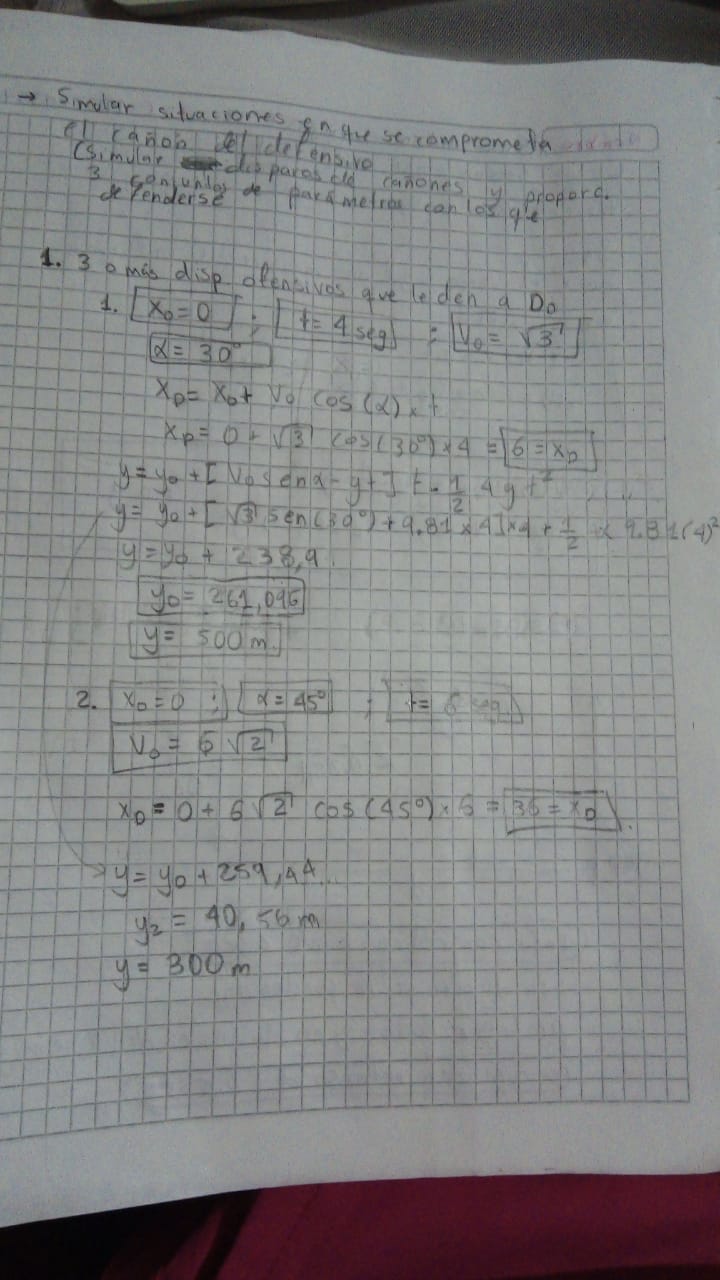 → Simular situaciones en que se comprometa
el cañon del defensivo
(Simular disparos de cañones y propora.
3 conjuntos de parámetros con los que
defenderse
1. 3 o más disp ofensivos que le den a D₀
1. X₀=0 ; t=4seg ; V₀= √3
α= 30°
X_D= X₀+ V₀ cos(α)×t
X_D= 0+ √3 cos(30°)×4 = 6=X_D
y=y₀+[V₀senα-gt]t-½4gt²
y= y₀+[√3 sen(30°)+9.81×4]×4+½×9.81(4)²
y=y₀ + 238,9
y₀= 261,096
y= 500m.
2. X₀=0 ; α=45° ; t= 6 seg
V₀= 6√2
X_D=0+ 6√2 cos(45°)×6 = 36=X_D.
y=y₀+259,44...
y₂= 40,56m
y= 300m